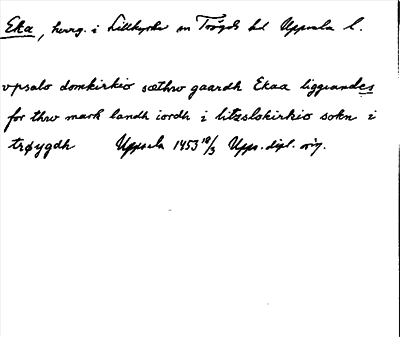 Eka, herrg. i Lillkyrka sn Trögds hd Uppsala l.
vpsalo domkirkio sæthro gaardh Ekaa liggiandes
for thro mark landh iordh i litzslokirkio sokn i
trøygdh Uppsala 1453 18/3 Upps. dipl. orig.